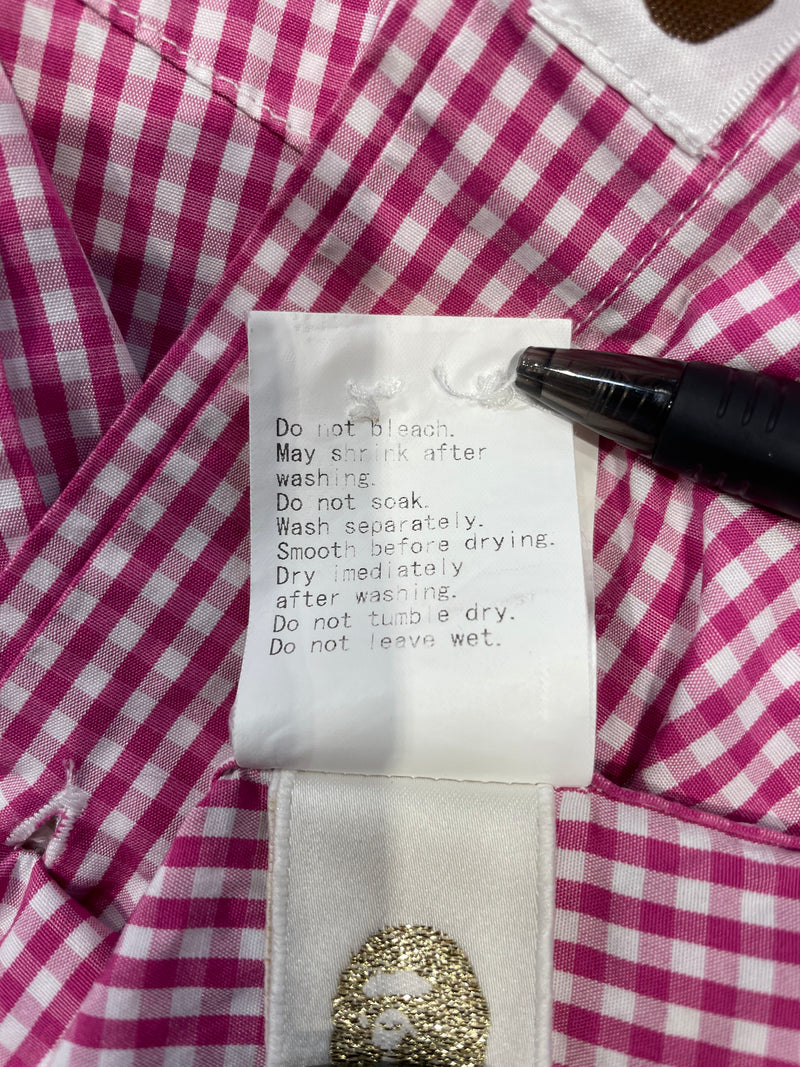 Do not bleach.
May shrink after
washing.
Do not soak.
Wash separately.
Smooth before drying.
Dry imediately
after washing.
Do not tumble dry.
Do not leave wet.